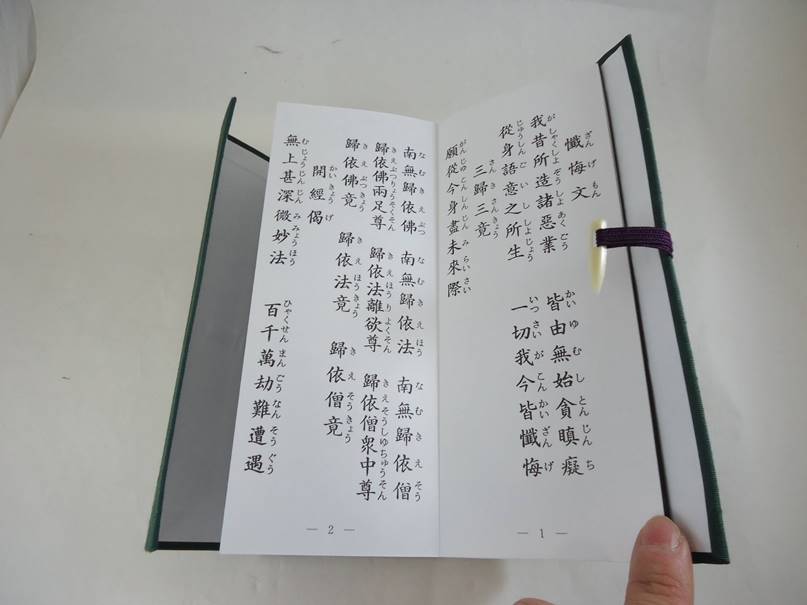 懺悔文
我昔所造諸惡業 皆由無始貪瞋癡
從身語意之所生 一切我今皆懺悔
三歸三竟
願從今身盡未來際
— 1 —
南無歸依佛 南無歸依法 南無歸依僧
歸依佛兩足尊 歸依法離欲尊 歸依僧衆中尊
歸依佛竟 歸依法竟 歸依僧竟
開經偈
無上甚深微妙法 百千萬劫難遭遇
— 2 —